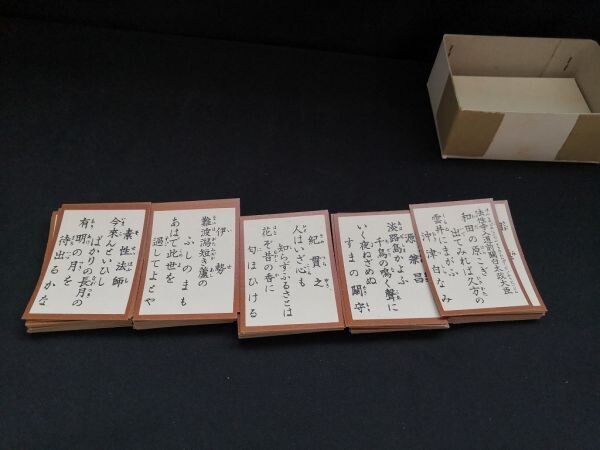 素性法師
今来んといひし
ばかりの長月の
有明の月を
待出るかな
伊勢
難波潟短き蘆の
ふしのまも
あはで此世を
過してよとや
紀貫之
人はいざ心も
知らずふるさとは
花ぞ昔の香に
匂ほひける
源兼昌
淡路島かよふ
千鳥の鳴く聲に
いく夜ねざめぬ
すまの關守
法性寺入道前關白太政大臣
和田の原こぎ
出てみれば久方の
雲井にまがふ
沖津白なみ